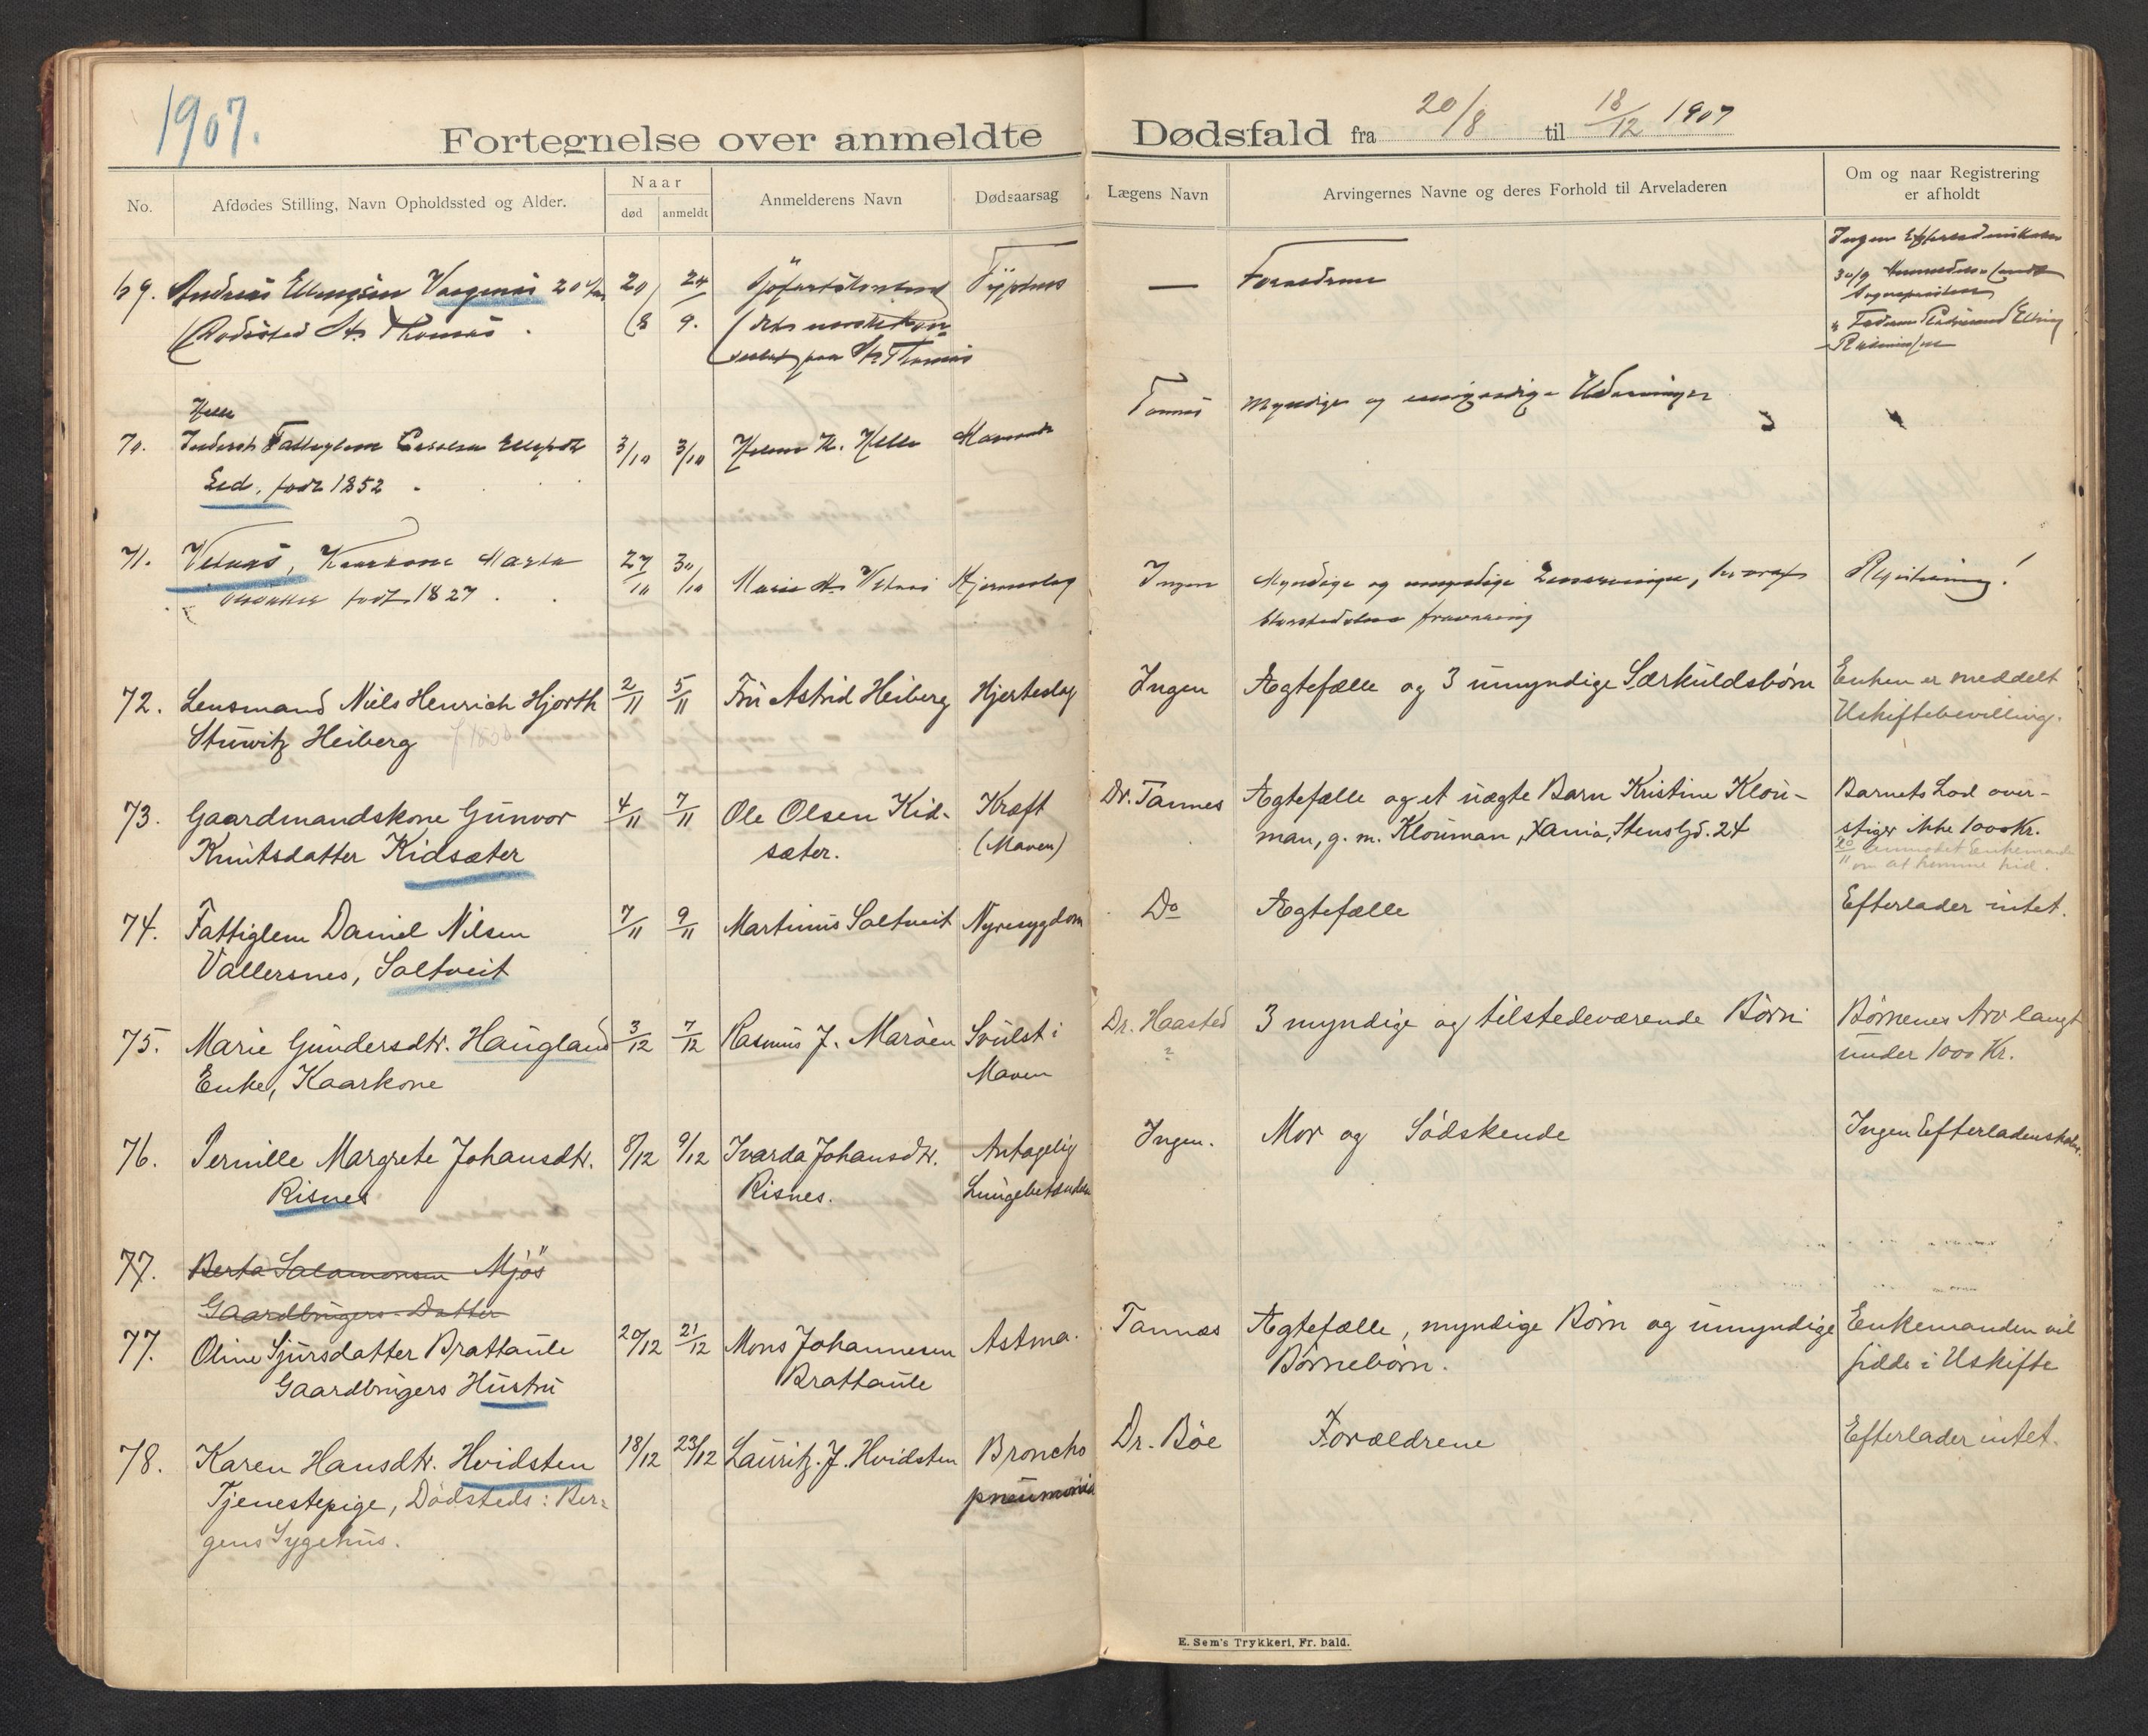 1907.
Fortegnelse over anmeldte Dødsfald fra 20/8 til 18/12 1907
No.
Afdødes Stilling, Navn Opholdssted og Alder.
Naar
død
anmeldt
Anmelderens Navn
Dødsaarsag
Lægens Navn
Arvingernes Navne og deres Forhold til Arveladeren
Om og naar Registrering
er afholdt
69. Andreas Ellingsen
20/8 24/9.
—
St. Thomas
Helle
70. Eid, født 1852
3/10 3/10
Helle
Tannæs
Myndige og
71. Vetaas, Kaarkone Marta
født 1827
27/10 30/10
Ingen
Myndige og umyndige
Registrering!
72. Lensmand Niels Henrich Hjorth
Stuwitz Heiberg
2/11 5/11
Fru Astrid Heiberg
Hjerteslag
Ingen
Ægtefælle og 3 umyndige Særkuldsbørn
Enken er meddelt
Uskiftebevilling.
73. Gaardmandskone Gunvor
Knutsdatter Kidsæter
4/11 7/11
Ole Olsen Kid-
sæter.
Kræft
(Maven)
Dr. Tannes
Ægtefælle og et uægte Barn Kristine Klou-
man, g. m. Klouman, Xania, Stensgd. 24
Barnets Lod over-
stiger ikke 1000 Kr.
20/11 anmodet Enkemanden
om at komme hid.
74. Fattiglem Daniel Nilsen
Vallersnes, Saltveit
7/11 9/11
Martinus Saltveit
Nyresygdom
Do
Ægtefælle
Efterlader intet.
75. Marie Gundersdtr. Haugland
Enke, Kaarkone
3/12 7/12
Rasmus J. Marøen
Svulst i
Maven
Dr. Haasted
?
3 myndige og tilstedeværende Børn
Børnenes Arv langt
under 1000 Kr.
76. Pernille Margrete Johansdtr.
Risnes
8/12 9/12
Ivarda Johansdtr.
Risnes.
Antagelig
Lungebetændelse
Ingen.
Mor og Sødskende
Ingen Efterladenskaber.
77. Berta Salamonsen Mjøs
Gaardbrugers Datter
77. Oline Sjursdatter Brattaule
Gaardbrugers Hustru
20/12 21/12
Mons Johannesen
Brattaule
Astma.
Tannæs
Ægtefælle, myndige Børn og umyndige
Børnebørn.
Enkemanden vil
sidde i Uskifte
78. Karen Hansdtr. Hvidsten
Tjenestepige, Dødsteds: Ber-
gens Sygehus.
18/12 23/12
Lauritz. J. Hvidsten
Broncho
pneumonia
Dr. Bøe
Forældrene
Efterlader intet.
E. Sem's Trykkeri, Fr. hald.